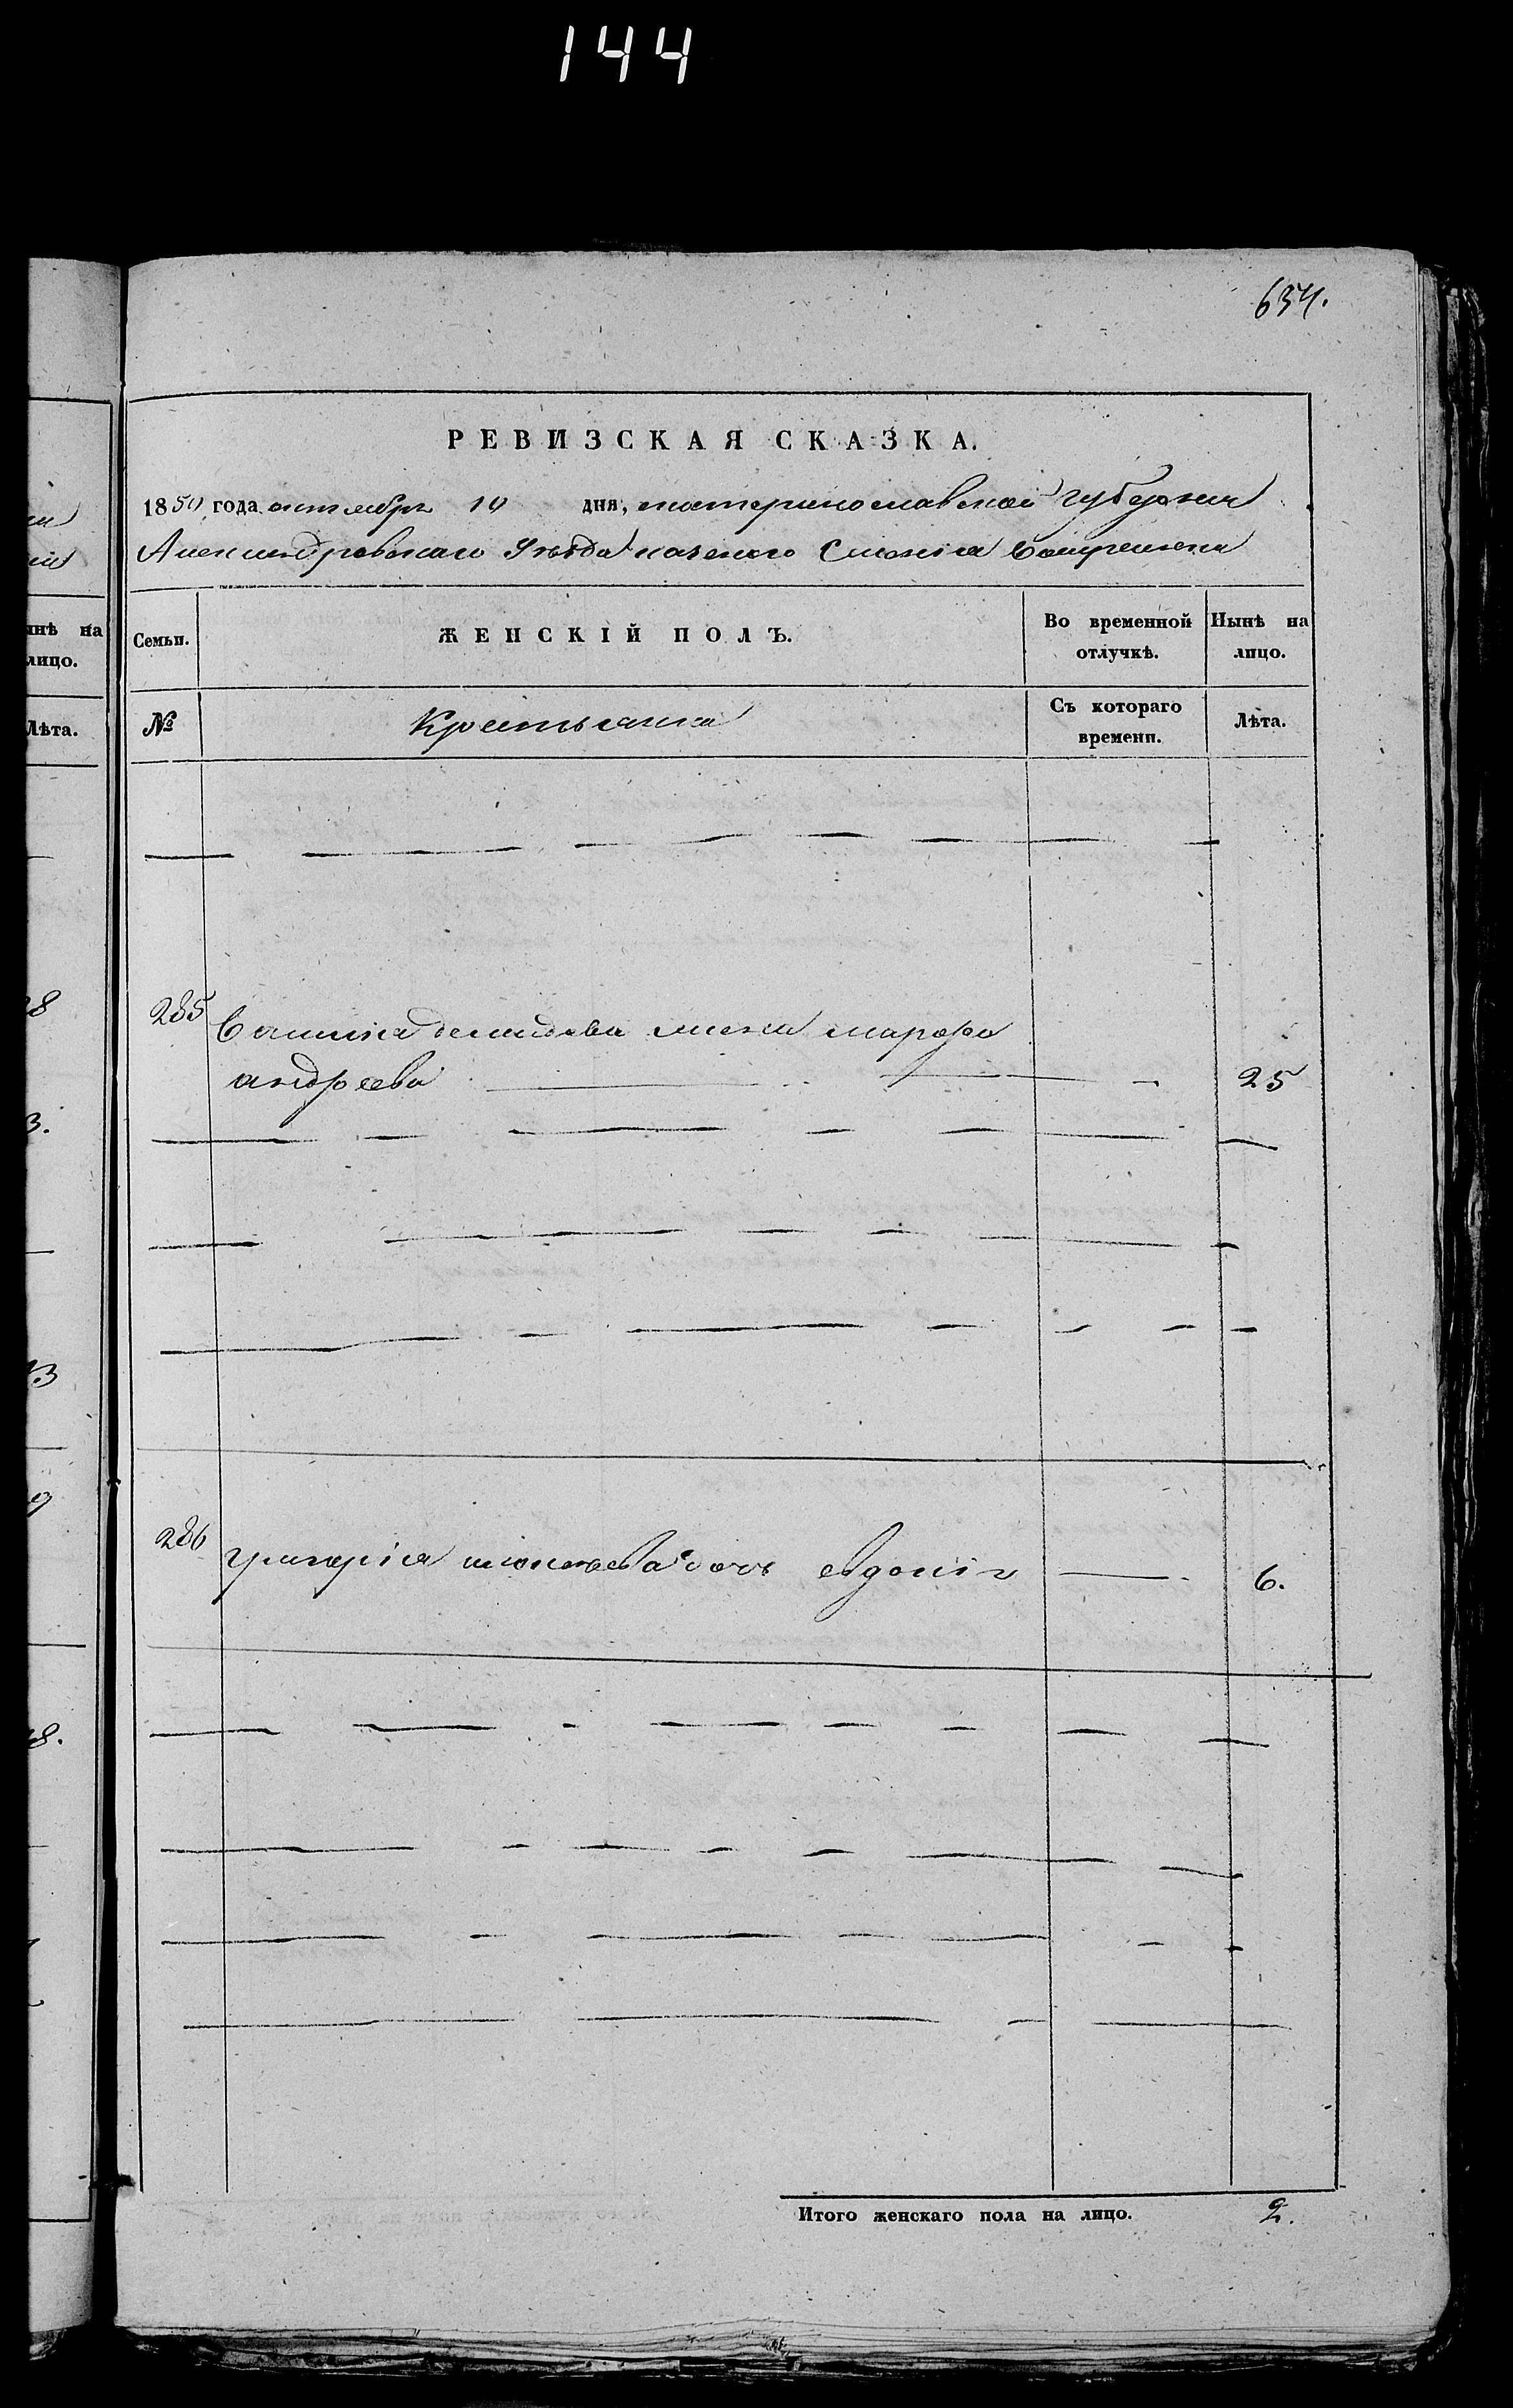 144
634.
РЕВИЗСКАЯ СКАЗКА.
1850 года октября 10 дня, екатеринославской губернии
Александровскаго Уезда казеного Селенія
Семьи.
ЖЕНСКІЙ ПОЛЪ.
Во временной отлучкѣ.
Нынѣ на лицо.
№
Крестьянка
Съ котораго времени.
Лѣта.
285
демидова жена марфа
андреева 25
286 григорія дочь евдокія 6.
Итого женскаго пола на лицо. 2.
нѣ на
лицо.
Лѣта.